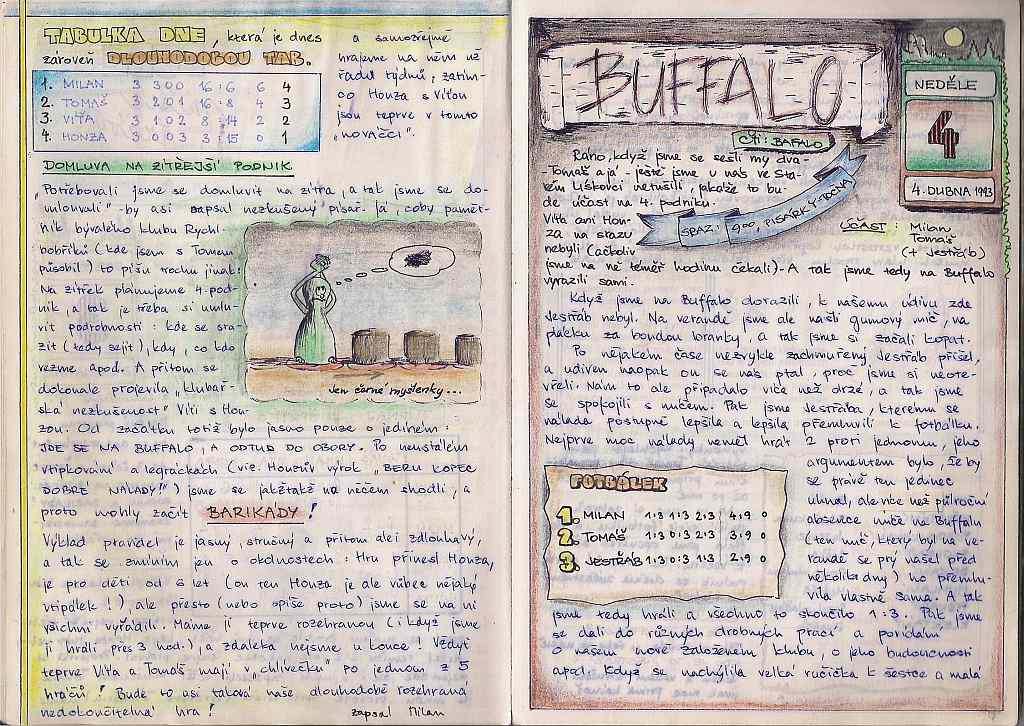 TABULKA DNE, která je dnes
zároveň DLOUHODOBOU TAB.
1. MILAN 3 3 0 0 16:6 6 4
2. TOMÁŠ 3 2 0 1 16:8 4 3
3. VÍŤA 3 1 0 2 8:14 2 2
4. HONZA 3 0 0 3 3:15 0 1
a samozřejmě
hrajeme na něm už
řadu týdnů; zatím-
co Honza s Víťou
jsou teprve v tomto
„NOVÁČCI".
DOMLUVA NA ZÍTŘEJŠÍ PODNIK
„Potřebovali jsme se domluvit na zítra, a tak jsme se do-
mlouvali" - by asi napsal nezkušený písař. Já, coby pamět-
ník bývalého klubu Rychl-
bobříků (kde jsem s Tomem
působil) to píšu trochu jinak:
Na zítřek plánujeme 4. pod-
nik, a tak je třeba si umlu-
vit podrobnosti: kde se sra-
zit (tedy sejít), kdy, co kdo
vezme apod. A přitom se
dokonale projevila „klubář-
ská nezkušenost" Víti s Hon-
zou. Od začátku totiž bylo jasno pouze o jediném:
JDE SE NA BUFFALO, A ODTUD DO OBORY. Po neustálém
vtipkování a legráckách (viz. Honzův výrok „BERU KOPEC
DOBRÉ NÁLADY!") jsme se jakžtakž na něčem shodli, a
proto mohly začít BARIKÁDY!
Jen černé myšlenky...
Výklad pravidel je jasný, stručný a přitom ale i zdlouhavý,
a tak se zmíním jen o okolnostech: Hru přinesl Honza,
je pro děti od 6 let (on ten Honza je ale vůbec nějaký
vtipálek!), ale přesto (nebo spíše proto) jsme se na ní
všichni vyřádili. Máme jí teprve rozehranou (i když jsme
ji hráli přes 3 hod.), a zdaleka nejsme u konce! Vždyť
teprve Víťa a Tomáš mají v „chlívečku" po jednom z 5
hráčů! Bude to asi taková naše dlouhodobě rozehraná
nedokončitelná hra!
zapsal Milan
BUFFALO
ČTI: BAFALO
NEDĚLE
4
4. DUBNA 1993
Ráno, když jsme se sešli my dva-
-Tomáš a já - ještě jsme u nás ve Sta-
rém Lískovci netušili, jakáže to bu-
de účast na 4. podniku.
Víťa ani Hon-
za na srazu
nebyli (ačkoliv
jsme na ně téměř hodinu čekali) - A tak jsme tedy na Buffalo
vyrazili sami.
SRAZ: 9.00, PISÁRKY-TOČNA
ÚČAST: Milan
Tomáš
(+ Jestřáb)
Když jsme na Buffalo dorazili, k našemu údivu zde
Jestřáb nebyl. Na verandě jsme ale našli gumový míč, na
plácku za boudou branky, a tak jsme si začali kopat.
Po nějakém čase nezvykle zachmuřený Jestřáb přišel,
a udiven naopak on se nás ptal, proč jsme si neote-
vřeli. Nám to ale připadalo více než drzé, a tak jsme
se spokojili s míčem. Pak jsme Jestřába, kterému se
nálada postupně lepšila a lepšila přemluvili k fotbálku.
Nejprve moc nálady neměl hrát 2 proti jednomu, jeho
argumentem bylo, že by
se právě ten jedinec
uhnal, ale více než půlroční
absence míče na Buffalu
(ten míč, který byl na ve-
randě se prý našel před
několika dny) ho přemlu-
vila vlastně sama. A tak
FOTBÁLEK
1. MILAN 1:3 1:3 2:3 4:9 0
2. TOMÁŠ 1:3 0:3 2:3 3:9 0
3. JESTŘÁB 1:3 0:3 1:3 2:9 0
jsme tedy hráli a všechno to skončilo 1:3. Pak jsme
se dali do různých drobných prací a povídání
o našem nově založeném klubu, o jeho budoucnosti
apod. Když se nachýlila velká ručička k šestce a malá